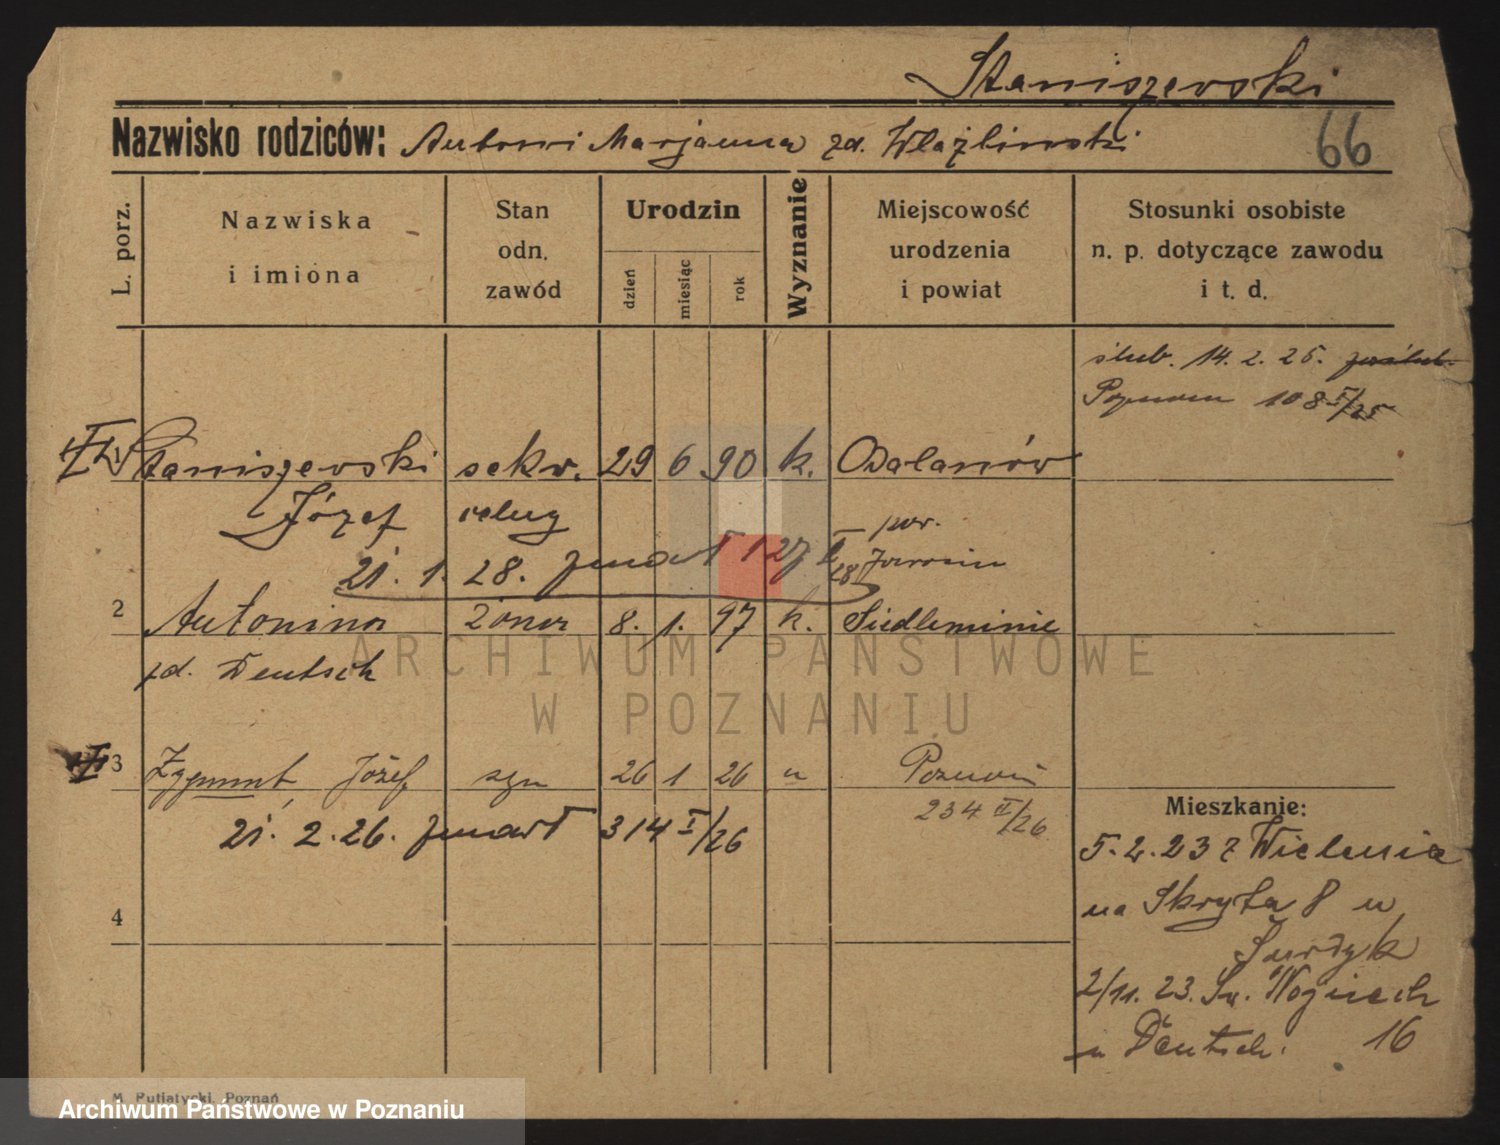 Staniszewski
Nazwisko rodziców: Antoni Marjanna zd. Włażlinski
66
L. porz.
Nazwiska
i imiona
Stan
odn.
zawód
Urodzin
dzień
miesiąc
rok
Wyznanie
Miejscowość
urodzenia
i powiat
Stosunki osobiste
n. p. dotyczące zawodu
i t. d.
ślub. 14. 2. 25.
Poznań 108 /25
Staniszewski sekw. 29 6 90 k. Odalanów
Józef pow.
21. 1. 28. zmarł 127 I/28 Jarocin
2 Antonina żona 8. 1. 97 k. Siedleminie
zd. Deutsch
3 Zygmunt Józef syn 26 1 26 " Poznań
234 II/26
21. 2. 26. zmarł 314 I/26
4
Mieszkanie:
5. 2. 23 z Wielenia
na Skryta 8 u
2/11. 23. Św. Wojciech
u Deutsch. 16
M. Putiatycki, Poznań
ARCHIWUM PAŃSTWOWE
W POZNANIU
Archiwum Państwowe w Poznaniu